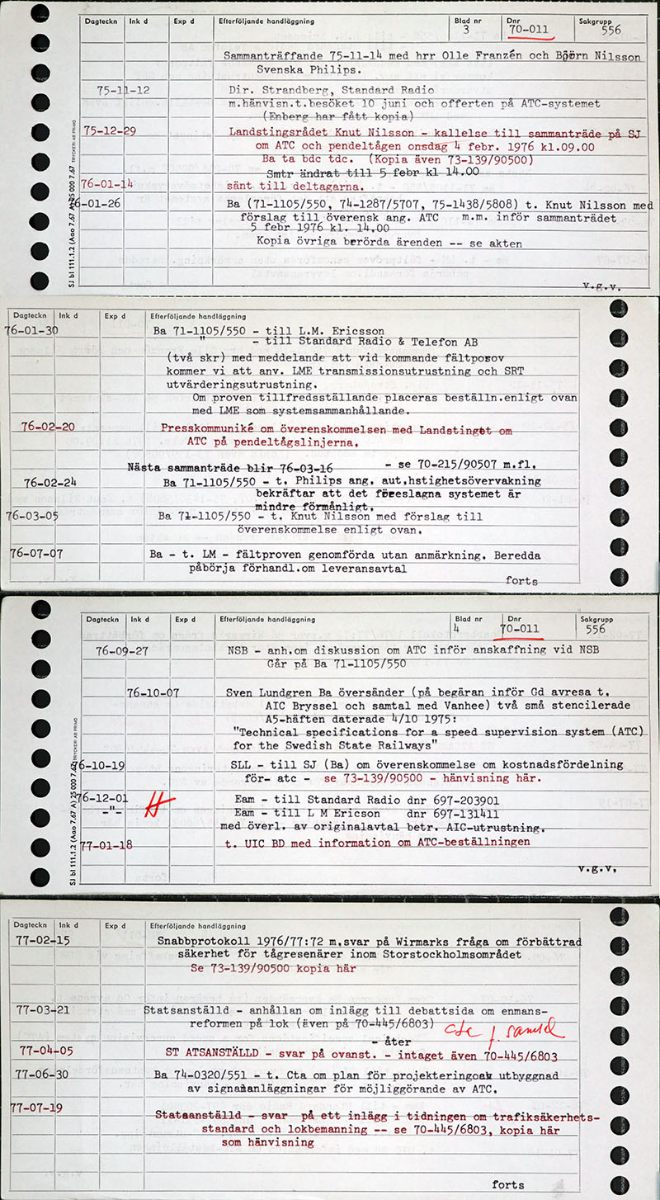 Dagteckn Ink d Exp d Efterföljande handläggning Blad nr 3 Dnr 70-011 Sakgrupp 556
Sammanträffande 75-11-14 med hrr Olle Franzén och Björn Nilsson
Svenska Philips.
75-11-12 Dir. Strandberg, Standard Radio
m.hänvisn.t.besöket 10 juni och offerten på ATC-systemet
(Enberg har fått kopia)
75-12-29 Landstingsrådet Knut Nilsson - kallelse till sammanträde på SJ
om ATC och pendeltågen onsdag 4 febr. 1976 kl.09.00
Ba ta bdc tdc. (Kopia även 73-139/90500)
Smtr ändrat till 5 febr kl 14.00
76-01-14 sänt till deltagarna.
76-01-26 Ba (71-1105/550, 74-1287/5707, 75-1438/5808) t. Knut Nilsson med
förslag till överensk ang. ATC m.m. inför sammanträdet
5 febr 1976 kl. 14.00
Kopia övriga berörda ärenden -- se akten
v.g.v.
SJ bl 111.1.2 (Aao 7.67 A) 25 000 7.67 TRYCKERI AB PRIMO
Dagteckn Ink d Exp d Efterföljande handläggning
76-01-30 Ba 71-1105/550 - till L.M. Ericsson
" - till Standard Radio & Telefon AB
(två skr) med meddelande att vid kommande fältporov
kommer vi att anv. LME transmissionsutrustning och SRT
utvärderingsutrustning.
Om proven tillfredsställande placeras beställn.enligt ovan
med LME som systemsammanhållande.
76-02-20 Presskommuniké om överenskommelsen med Landstinget om
ATC på pendeltågslinjerna.
Nästa sammanträde blir 76-03-16 - se 70-215/90507 m.fl.
76-02-24 Ba 71-1105/550 - t. Philips ang. aut.hstighetsövervakning
bekräftar att det föreslagna systemet är
mindre förmånligt.
76-03-05 Ba 71-1105/550 - t. Knut Nilsson med förslag till
överenskommelse enligt ovan.
76-07-07 Ba - t. LM - fältproven genomförda utan anmärkning. Beredda
påbörja förhandl.om leveransavtal
forts
Dagteckn Ink d Exp d Efterföljande handläggning Blad nr 4 Dnr 70-011 Sakgrupp 556
76-09-27 NSB - anh.om diskussion om ATC inför anskaffning vid NSB
Går på Ba 71-1105/550
76-10-07 Sven Lundgren Ba översänder (på begäran inför Gd avresa t.
AIC Bryssel och samtal med Vanhee) två små stencilerade
A5-häften daterade 4/10 1975:
"Technical specifications for a speed supervision system (ATC)
for the Swedish State Railways"
76-10-19 SLL - till SJ (Ba) om överenskommelse om kostnadsfördelning
för- atc - se 73-139/90500 - hänvisning här.
76-12-01 Eam - till Standard Radio dnr 697-203901
-"- Eam - till L M Ericson dnr 697-131411
med överl. av originalavtal betr. AIC-utrustning.
77-01-18 t. UIC BD med information om ATC-beställningen
v.g.v.
SJ bl 111.1.2 (Aao 7.67 A) 25 000 7.67 TRYCKERI AB PRIMO
Dagteckn Ink d Exp d Efterföljande handläggning
77-02-15 Snabbprotokoll 1976/77:72 m.svar på Wirmarks fråga om förbättrad
säkerhet för tågresenärer inom Storstockholmsområdet
Se 73-139/90500 kopia här
77-03-21 Statsanställd - anhållan om inlägg till debattsida om enmans-
reformen på lok (även på 70-445/6803)
- åter
77-04-05 ST ATSANSTÄLLD - svar på ovanst. - intaget även 70-445/6803
77-06-30 Ba 74-0320/551 - t. Cta om plan för projektering utbyggnad
av signalanläggningar för möjliggörande av ATC.
77-07-19 Statsanställd - svar på ett inlägg i tidningen om trafiksäkerhets-
standard och lokbemanning -- se 70-445/6803, kopia här
som hänvisning
forts